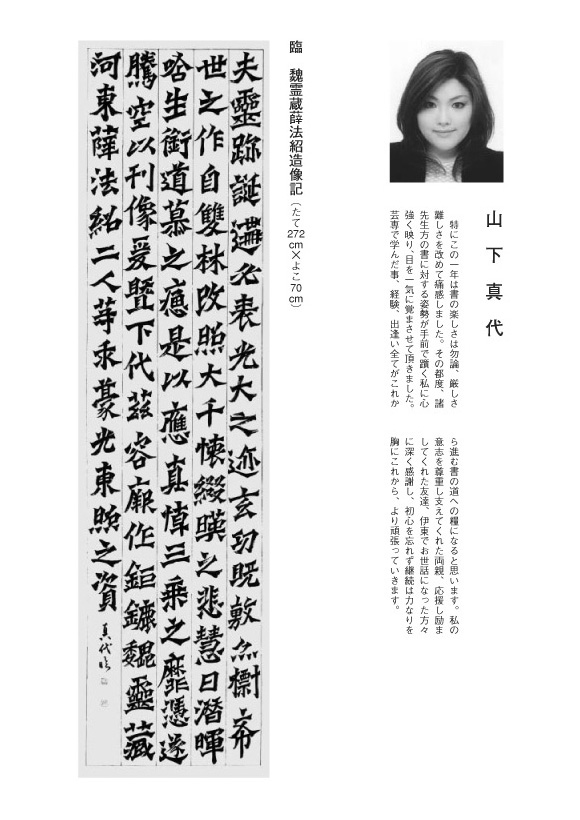 山下真代
特にこの一年は書の楽しさは勿論、厳しさ
難しさを改めて痛感しました。その都度、諸
先生方の書に対する姿勢が手前で躓く私に心
強く映り、目を一気に覚まさせて頂きました。
芸専で学んだ事、経験、出逢い全てがこれか
ら進む書の道への糧になると思います。私の
意志を尊重し支えてくれた両親、応援し励ま
してくれた友達、伊東でお世話になった方々
に深く感謝し、初心を忘れず継続は力なりを
胸にこれから、より頑張っていきます。
臨 魏霊蔵薛法紹造像記（たて272cm×よこ70cm）
夫靈跡誕遘必表光大之迹玄功既敷亦㯹希
世之作自雙林改照大千懷綴暎之悲慧日潛暉
唅生銜道慕之痛是以應真悼三乘之靡憑遂
騰空以刊像爰暨下代茲容廠作鉅鏕魏靈藏
河東薛法紹二人等求豪光東照之資
真代臨